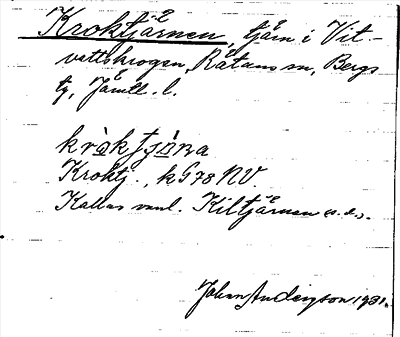 Kroktjärnen, tjärn i Vit-
vattskrogen, Rätans sn, Bergs
tg, Jämtl. l.
kròktjǝ̀ṇa
Kroktj., k G78 NV.
Kallas vanl. Kiltjärnen (s.d.).
Johan Anderzson 1931.